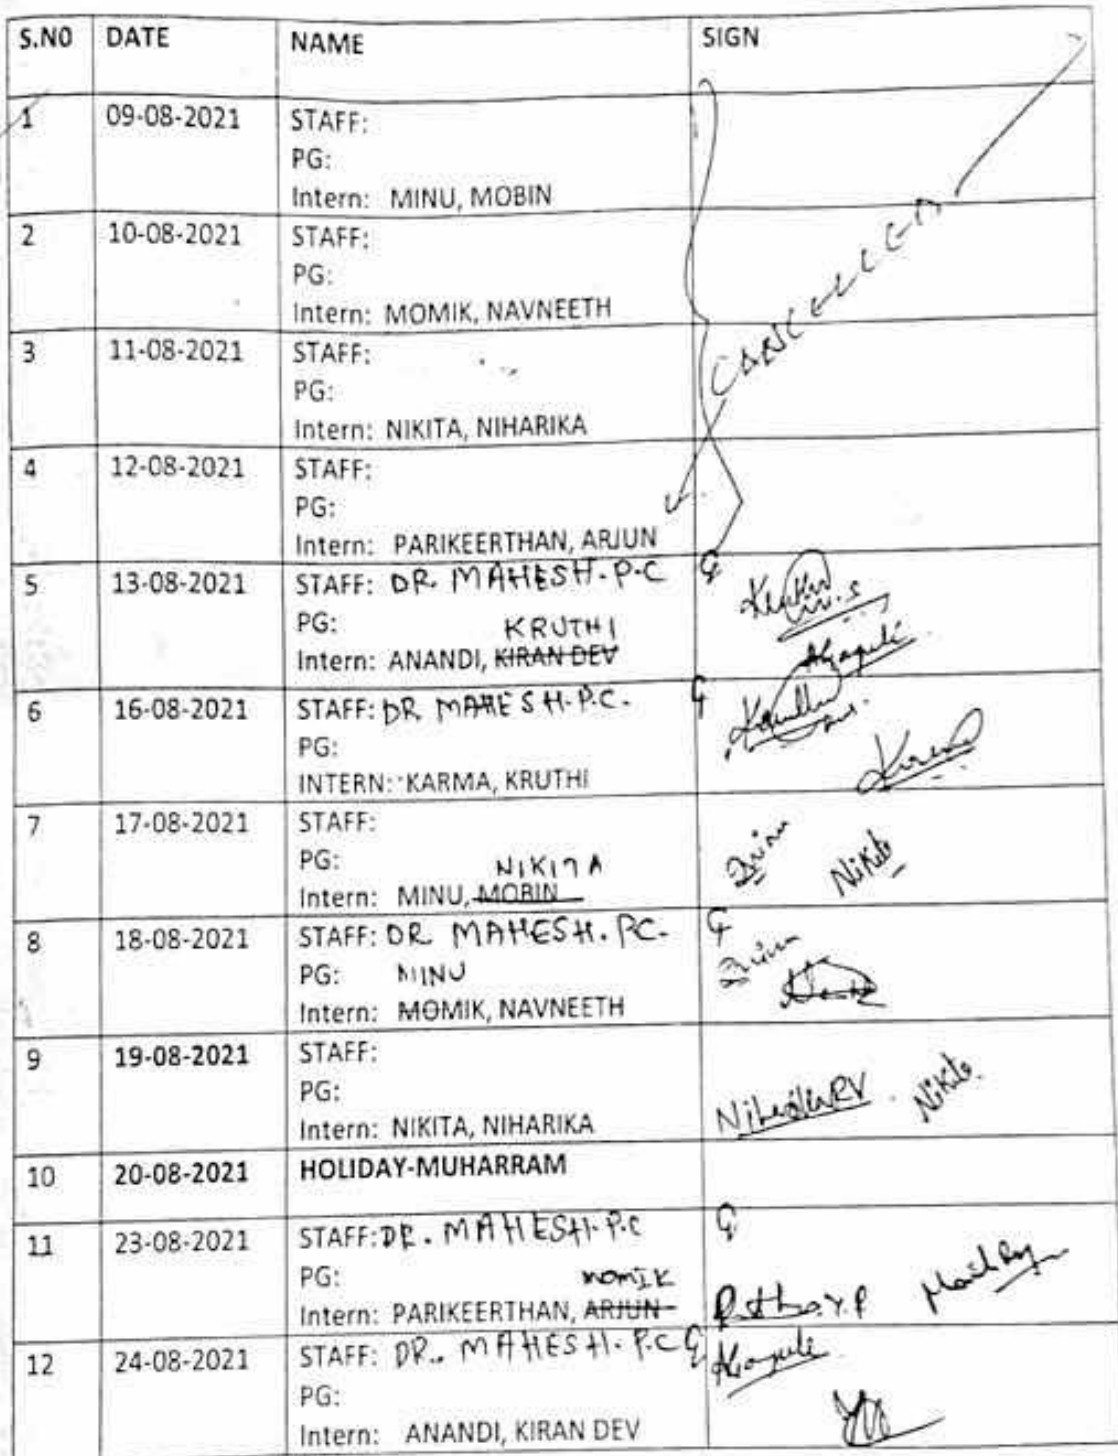 S.NO DATE NAME SIGN
1 09-08-2021 STAFF:
PG:
Intern: MINU, MOBIN
2 10-08-2021 STAFF:
PG:
Intern: MOMIK, NAVNEETH
CANCELLED
3 11-08-2021 STAFF:
PG:
Intern: NIKITA, NIHARIKA
4 12-08-2021 STAFF:
PG:
Intern: PARIKEERTHAN, ARJUN
5 13-08-2021 STAFF: DR. MAHESH.P.C
PG: KRUTHI
Intern: ANANDI, KIRAN DEV
6 16-08-2021 STAFF: DR MAHESH.P.C.
PG:
INTERN: KARMA, KRUTHI
7 17-08-2021 STAFF:
PG: NIKITA
Intern: MINU, MOBIN Nikita
8 18-08-2021 STAFF: DR MAHESH.P.C.
PG: MINU
Intern: MOMIK, NAVNEETH
9 19-08-2021 STAFF:
PG:
Intern: NIKITA, NIHARIKA Nikita
10 20-08-2021 HOLIDAY-MUHARRAM
11 23-08-2021 STAFF: DR. MAHESH.P.C
PG: MOMIK
Intern: PARIKEERTHAN, ARJUN
12 24-08-2021 STAFF: DR. MAHESH.P.C
PG:
Intern: ANANDI, KIRAN DEV